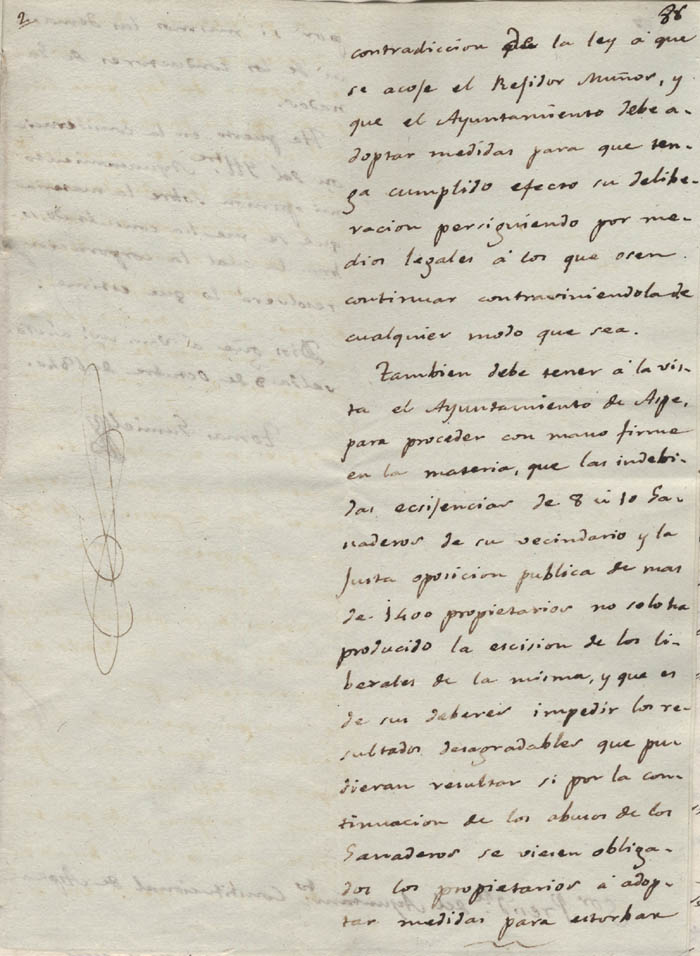 2.
88
contradiccion de la ley á que
se acoje el Rejidor Muñoz, y
que el Ayuntamiento debe a-
doptar medidas para que ten-
ga cumplido efecto su delibe-
racion persiguiendo por me-
dios legales á los que osen
continuar contraviniendola de
cualquier modo que sea.
Tambien debe tener á la vis-
ta el Ayuntamiento de Aspe,
para proceder con mano firme
en la materia, que las indebi-
das ecsijencias de 8 ú 10 Ga-
naderos de su vecindario y la
justa oposicion publica de mas
de 1400 propietarios no solo ha
producido la escision de los li-
berales de la misma, y que es
de sus deberes impedir los re-
sultados desagradables que pu-
dieran resultar si por la con-
tinuacion de los abusos de los
Ganaderos se viesen obliga-
dos los propietarios á adop-
tar medidas para estorbar